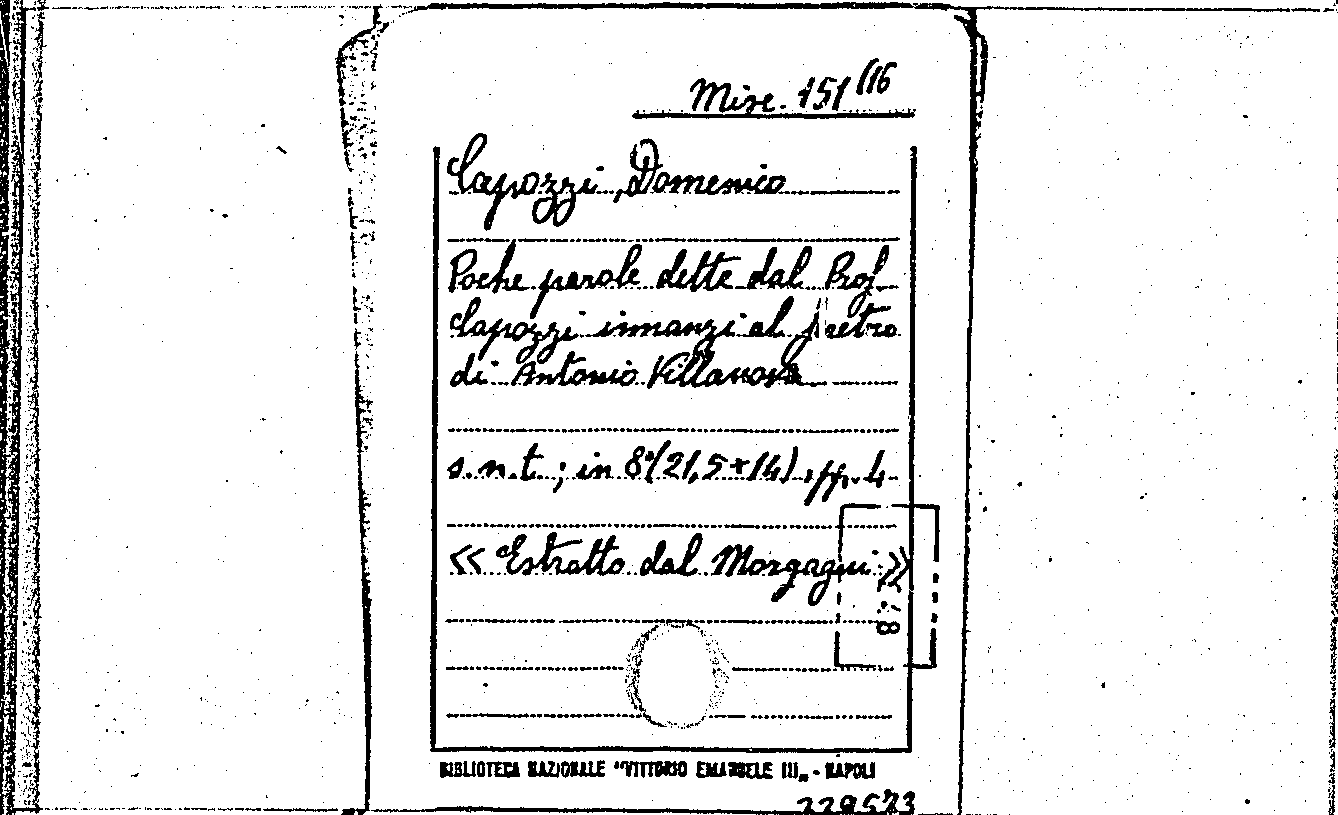 Misc. 151/116
Capozzi, Domenico
Poche parole dette dal Prof.
Capozzi innanzi al feretro
di Antonio Villanova
s.n.t.; in 8º (21,5×14), pp. 4
«Estratto dal Morgagni»
BIBLIOTECA NAZIONALE "VITTORIO EMANUELE III„ - NAPOLI